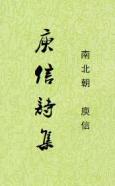 南北朝 庾信
庾信詩集